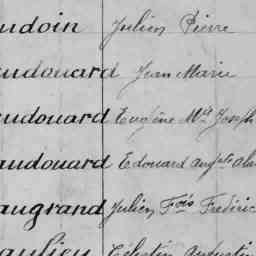 udoin Julien Pierre
udouard Jean Marie
udouard Eugène Mie Joseph
audouard Edouard Augste Ala
augrand Julien Fois Frédéric
aulieu Célestin Augustin